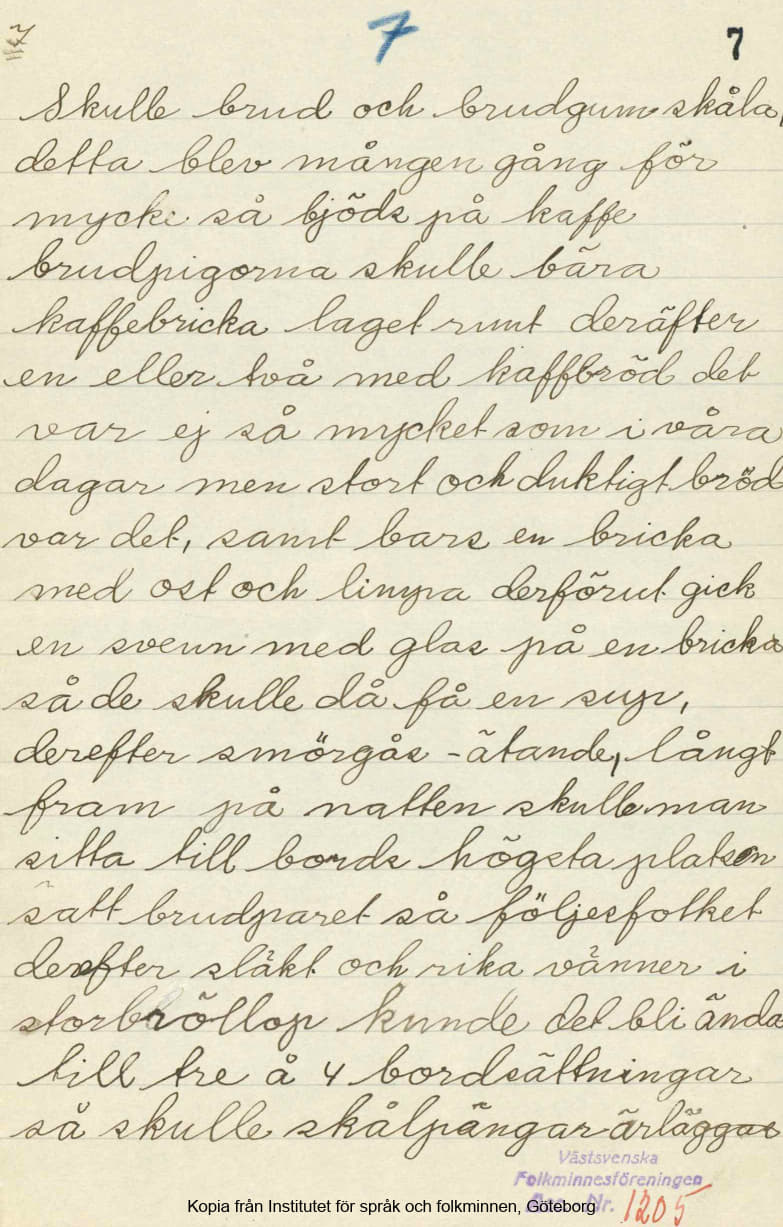 7 7 7
Skulle brud och brudgum skåla,
detta blev mången gång för
mycke så bjöds på kaffe
brudpigorna skulle bära
kaffebricka laget runt deräfter
en eller två med kaffbröd det
var ej så mycket som i våra
dagar men stort och duktigt bröd
var det, samt bars en bricka
med ost och limpa derförut gick
en svenn med glas på en bricka
så de skulle då få en sup,
derefter smörgås - ätande, långt
fram på natten skulle man
sitta till bords högsta platsen
satt brudparet så följesfolket
derefter släkt och rika vänner i
storbröllop kunde det bli ända
till tre å 4 bordsättningar
så skulle skålpängar ärläggas
Västsvenska
Folkminnesföreningen
Acc. Nr. 1205
Kopia från Institutet för språk och folkminnen, Göteborg